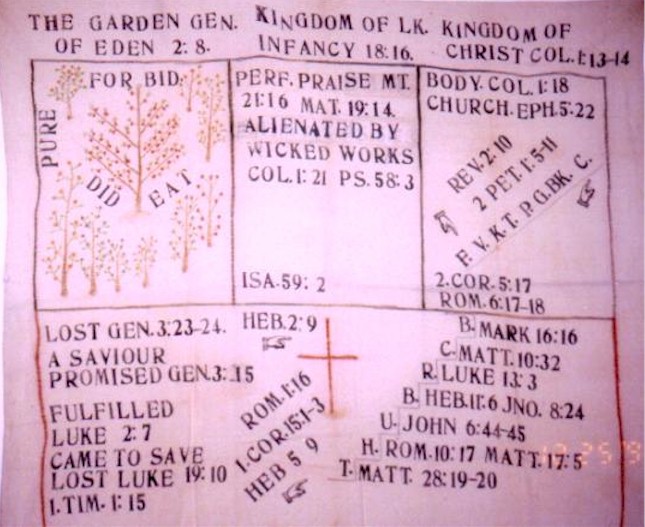 THE GARDEN GEN.
OF EDEN 2:8.
KINGDOM OF LK.
INFANCY 18:16.
KINGDOM OF
CHRIST COL.1:13-14
FOR BID
PURE
DID EAT
PERF. PRAISE MT.
21:16 MAT. 19:14
ALIENATED BY
WICKED WORKS
COL.1:21 PS.58:3
ISA.59:2
BODY.COL.1:18
CHURCH.EPH.5:22
REV.2:10
2 PET.1:5-11
F.V.K.T.P.G.BK.C.
2.COR.5:17
ROM.6:17-18
LOST GEN.3:23-24.
A SAVIOUR
PROMISED GEN.3:15
FULFILLED
LUKE 2:7
CAME TO SAVE
LOST LUKE 19:10
1.TIM.1:15
HEB.2:9
ROM.1:16
1.COR.15:1-3
HEB 5 9
B. MARK 16:16
C. MATT.10:32
R. LUKE 13:3
B. HEB.11:6 JNO. 8:24
U. JOHN 6:44-45
H. ROM.10:17 MATT.17:5
T. MATT. 28:19-20